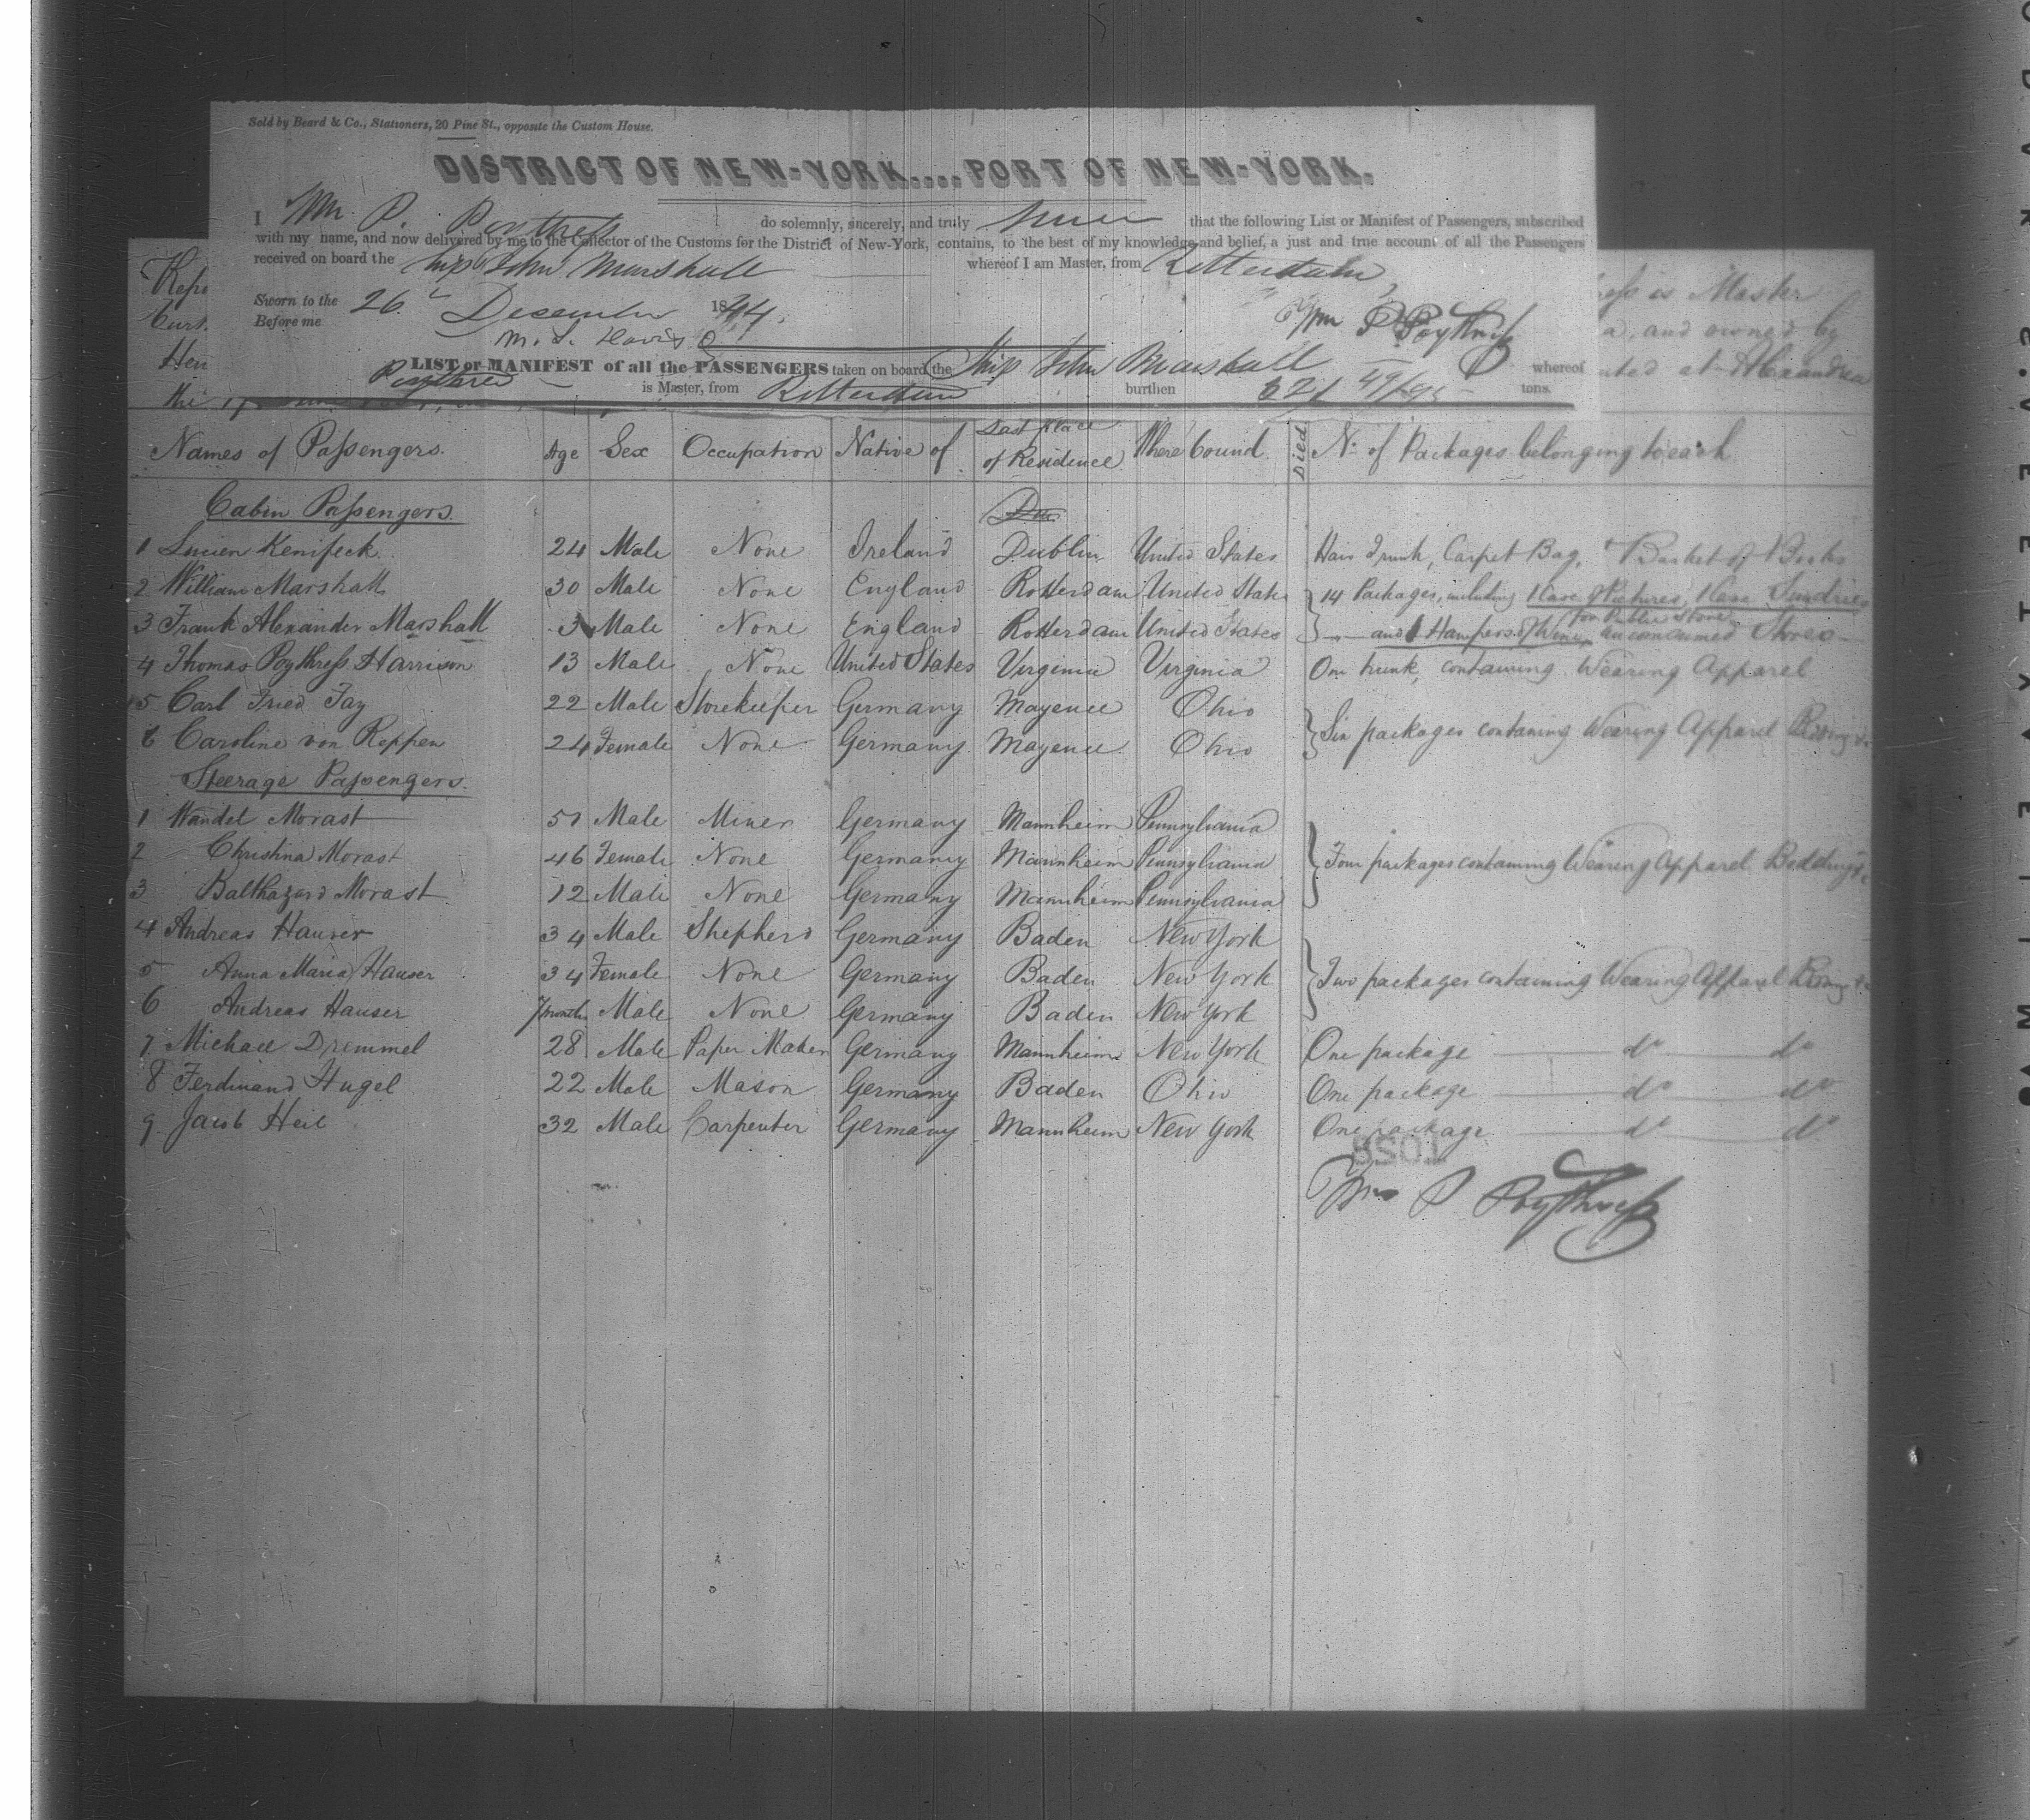 Sold by Beard & Co., Stationers, 20 Pine St., opposite the Custom House.
DISTRICT OF NEW-YORK....PORT OF NEW-YORK.
I Wm P. Poythress do solemnly, sincerely, and truly swear that the following List or Manifest of Passengers, subscribed
with my name, and now delivered by me to the Collector of the Customs for the District of New-York, contains, to the best of my knowledge and belief, a just and true account of all the Passengers
received on board the Ship John Marshall whereof I am Master, from Rotterdam
Sworn to the 26 December 1844.
Before me
Wm P Poythress
LIST or MANIFEST of all the PASSENGERS taken on board the Ship John Marshall whereof
Poythress is Master, from Rotterdam burthen 621 49/95 tons.
is Master
a, and owned by
at Alexandria
Names of Passengers. Age Sex Occupation Native of Last place of Residence Where bound. Died No. of Packages belonging to each
Cabin Passengers.
1 Lucien Kenifeck 24 Male None Ireland Dublin United States Hair Trunk, Carpet Bag, & Basket of Books
2 William Marshall 30 Male None England Rotterdam United States 14 Packages, including 1 Case of Pictures, 1 Case Sundries
for Public Store
3 Frank Alexander Marshall 3 Male None England Rotterdam United States and Hampers of Wine, unconsumed Stores
4 Thomas Poythress Harrison 13 Male None United States Virginia Virginia One trunk, containing Wearing Apparel
5 Carl Fried Fay 22 Male Storekeeper Germany Mayence Ohio
6 Caroline von Reppen 24 Female None Germany Mayence Ohio Six packages containing Wearing Apparel
Steerage Passengers.
1 Wandel Morast 51 Male Miner Germany Mannheim Pennsylvania
2 Christina Morast 46 Female None Germany Mannheim Pennsylvania Four packages containing Wearing Apparel Bedding &c
3 Balthazard Morast 12 Male None Germany Mannheim Pennsylvania
4 Andreas Hauser 34 Male Shepherd Germany Baden New York
5 Anna Maria Hauser 34 Female None Germany Baden New York Two packages containing Wearing Apparel
6 Andreas Hauser 7 months Male None Germany Baden New York
7 Michael Dremmel 28 Male Paper Maker Germany Mannheim New York One package do do
8 Ferdinand Hugel 22 Male Mason Germany Baden Ohio One package do do
9 Jacob Heil 32 Male Carpenter Germany Mannheim New York One package do do
Wm P Poythress